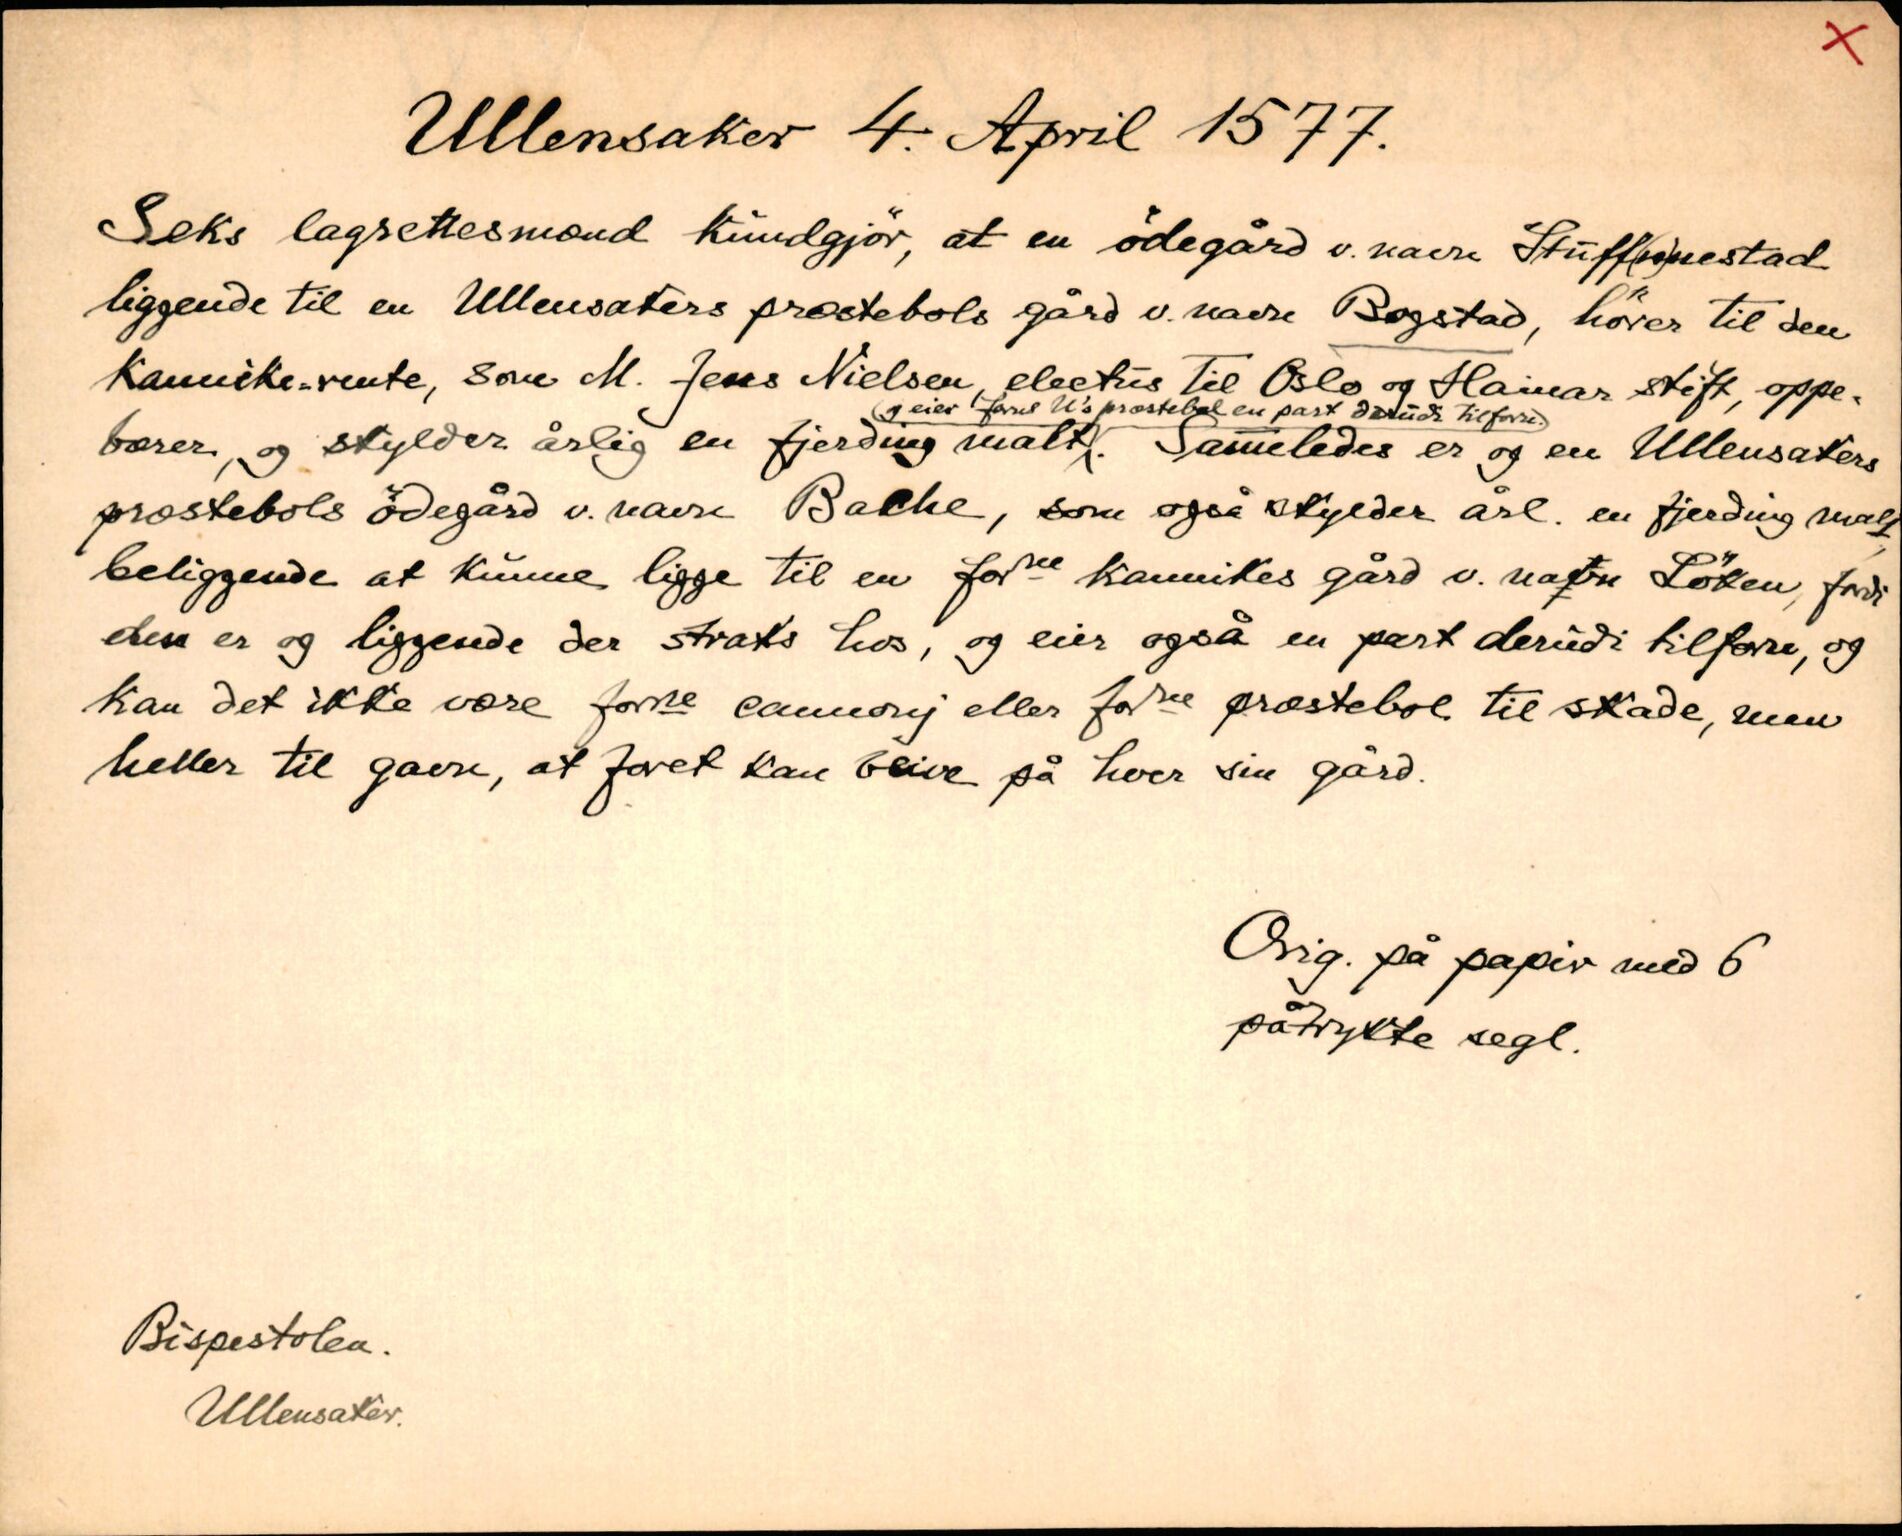 Ullensaker 4. April 1577.
Seks lagrettesmænd kundgjör, at en ödegård v. navn Stuff(n)nestad
liggende til en Ullensakers præstebols gård v. navn Bogstad, hörer til den
kannike-rente, som M. Jens Nielsen, electus til Oslo og Hamar stift, oppe-
(og eier forne U's præstebol en part derudi tilforn)
bærer, og skylder årlig en fjerding malt. Sammeledes er og en Ullensakers
præstebols ödegård v. navn Bache, som også skylder årl. en fjerding malt,
beliggende at kunne ligge til en forne kannikes gård v. navn Löken, fordi
den er og liggende der straks hos, og eier også en part derudi tilforn, og
kan det ikke være forne cannorij eller forne præstebol til skade, men
heller til gavn, at foret kan blive på hver sin gård.
Orig. på papir med 6
påtrykte segl.
Bispestolen.
Ullensaker.